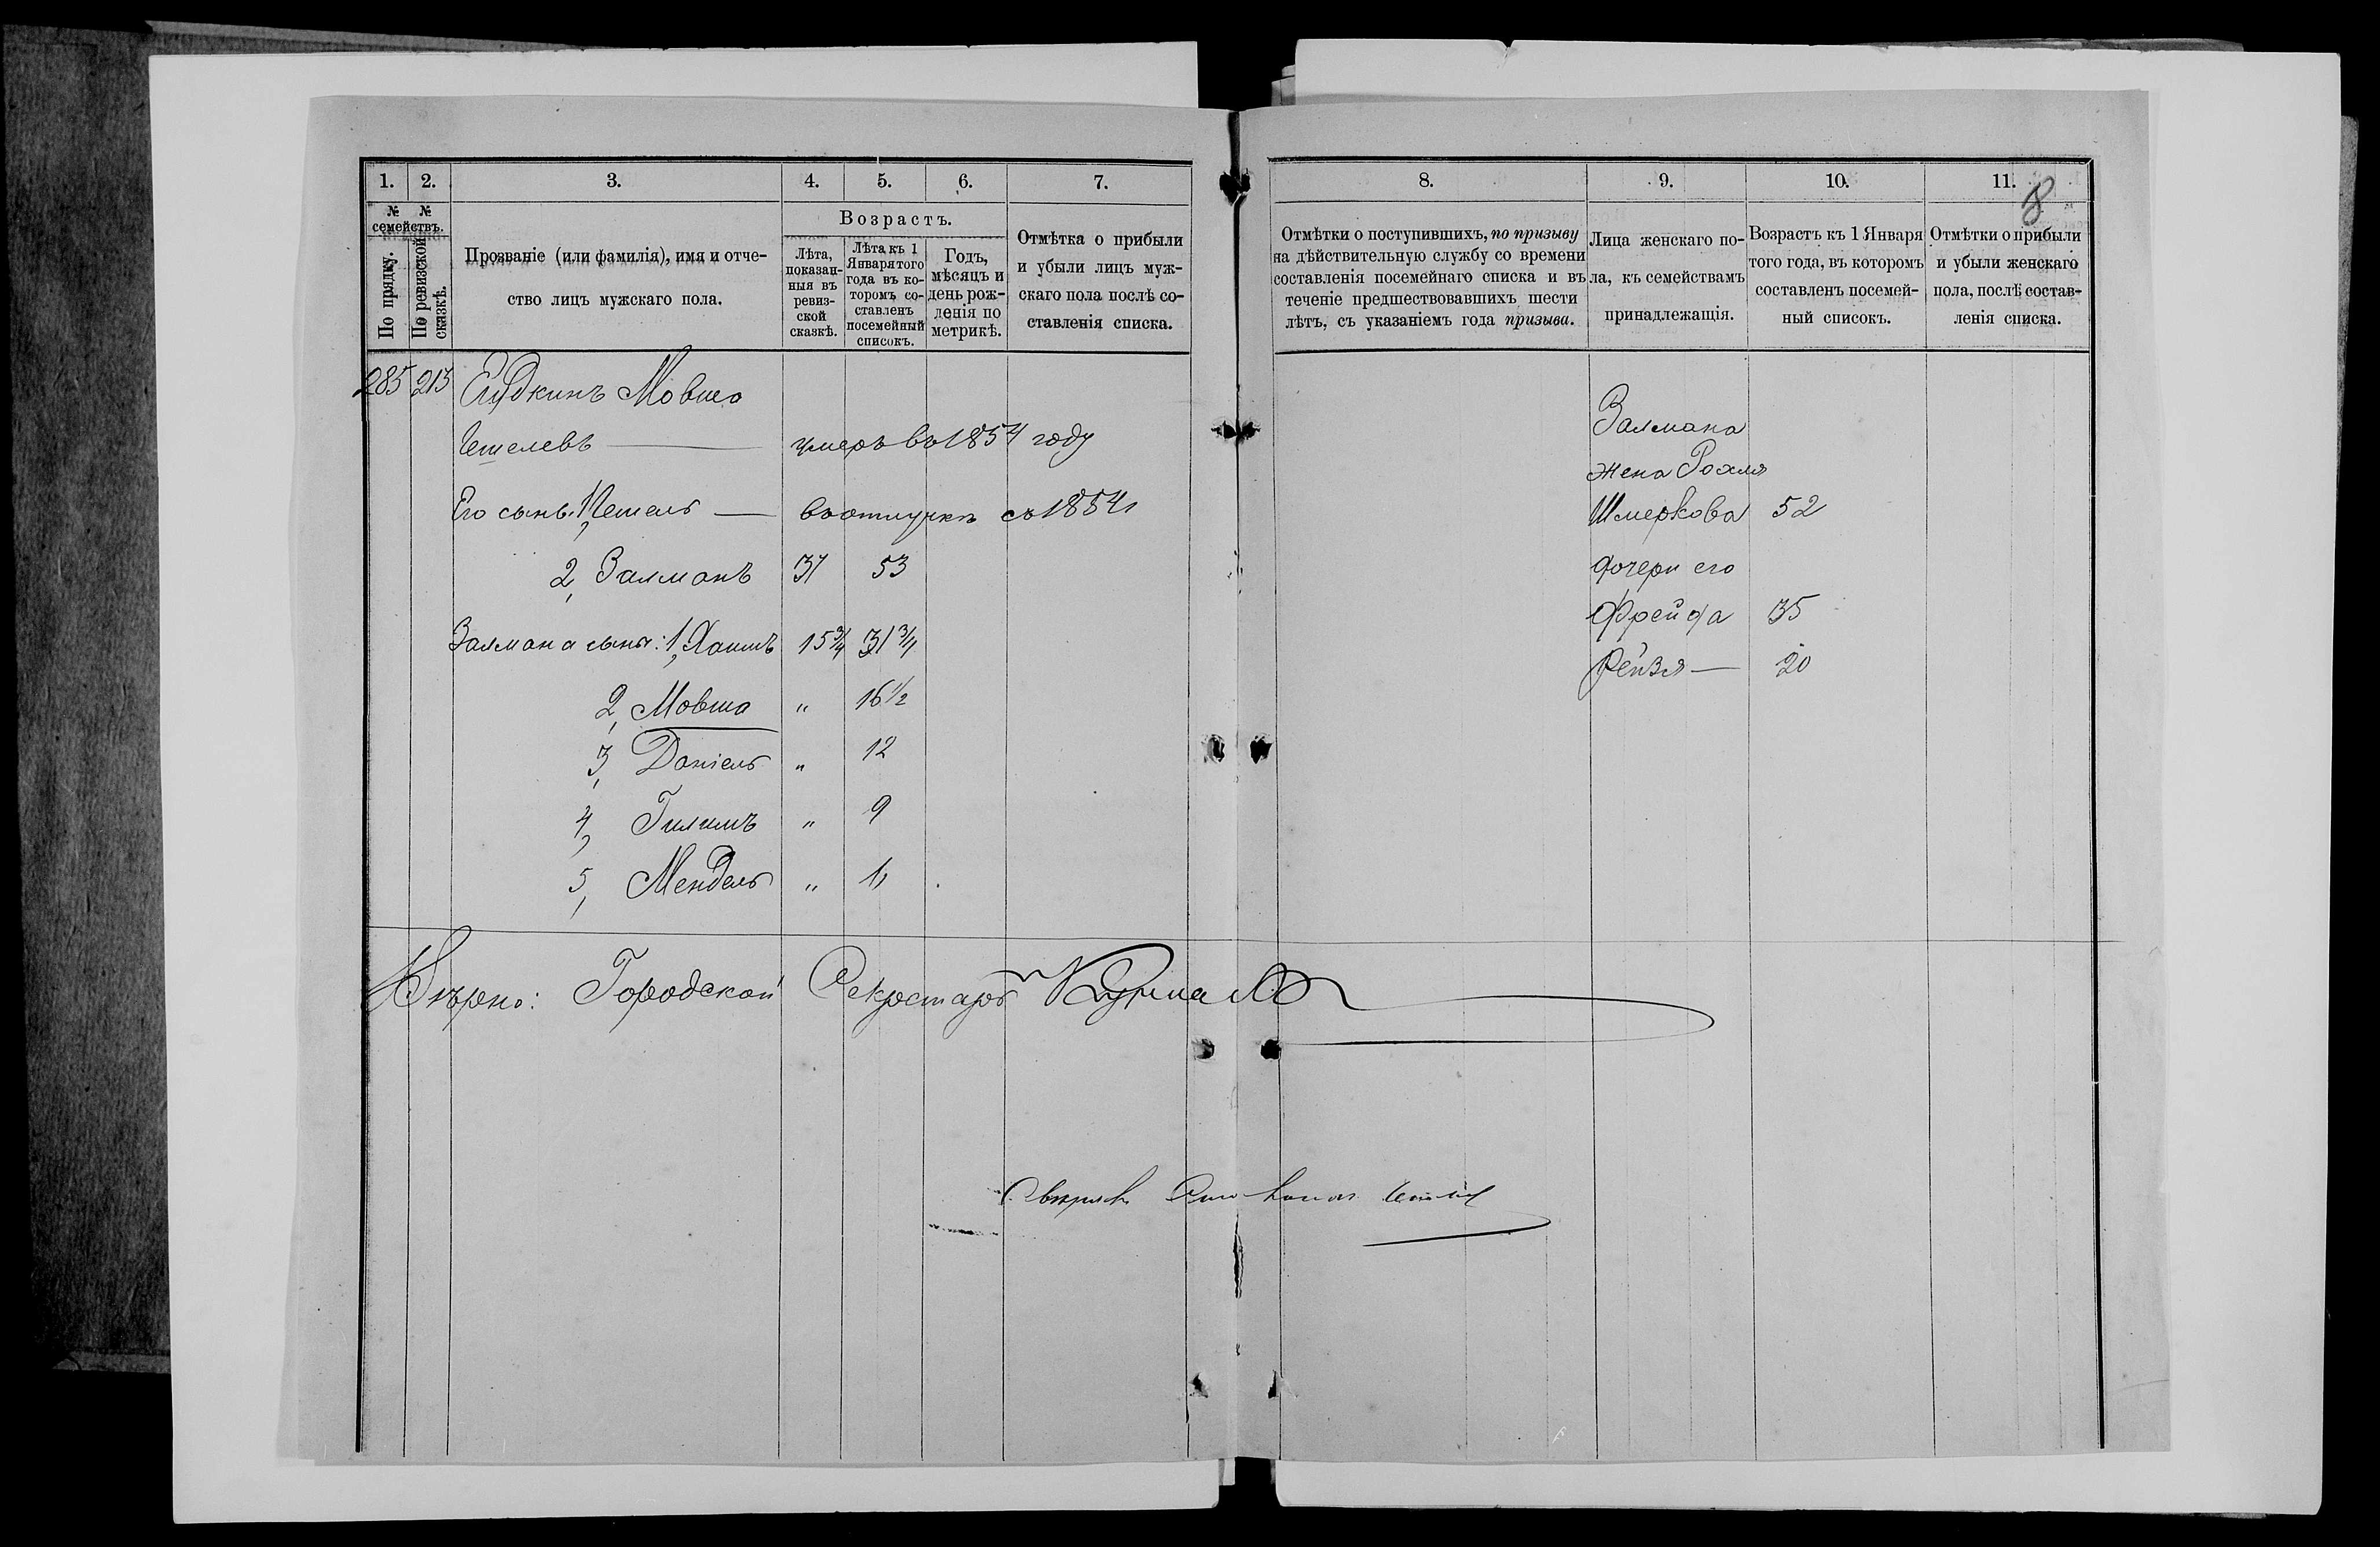 1. 2. 3. 4. 5. 6. 7.
№ №
семействъ.
По прядку.
По ревизской сказкѣ.
Прозваніе (или фамилія), имя и отче-
ство лицъ мужскаго пола.
Возрастъ.
Лѣта,
показан-
ныя въ
ревиз-
ской
сказкѣ.
Лѣта къ 1
Января того
года въ ко-
торомъ со-
ставленъ
посемейный
списокъ.
Годъ,
мѣсяцъ и
день рож-
ленія по
метрикѣ.
Отмѣтка о прибыли
и убыли лицъ муж-
скаго пола послѣ со-
ставленія списка.
285 213 Мовша
умеръ въ 1854 году
Его сынъ: 1, въ отлучкѣ съ 1854
2, Залманъ 37 53
Залмана сыны: 1, Хаимъ 15 3/4 31 3/4
2, Мовша " 16 1/2
3, Даніель " 12
4, " 9
5, Мендель "
Вѣрно: Городской Секретарь
8. 9. 10. 11.
8
Отмѣтки о поступившихъ, по призыву
на дѣйствительную службу со времени
составленія посемейнаго списка и въ
теченіе предшествовавшихъ шести
лѣтъ, съ указаніемъ года призыва.
Лица женскаго по-
ла, къ семействамъ
принадлежащія.
Возрастъ къ 1 Января
того года, въ которомъ
составленъ посемей-
ный списокъ.
Отмѣтки о прибыли
и убыли женскаго
пола, послѣ состав-
ленія списка.
Залмана
жена Рохля
Шмеркова 52
дочери его
Фрейда 35
Рейзя 20